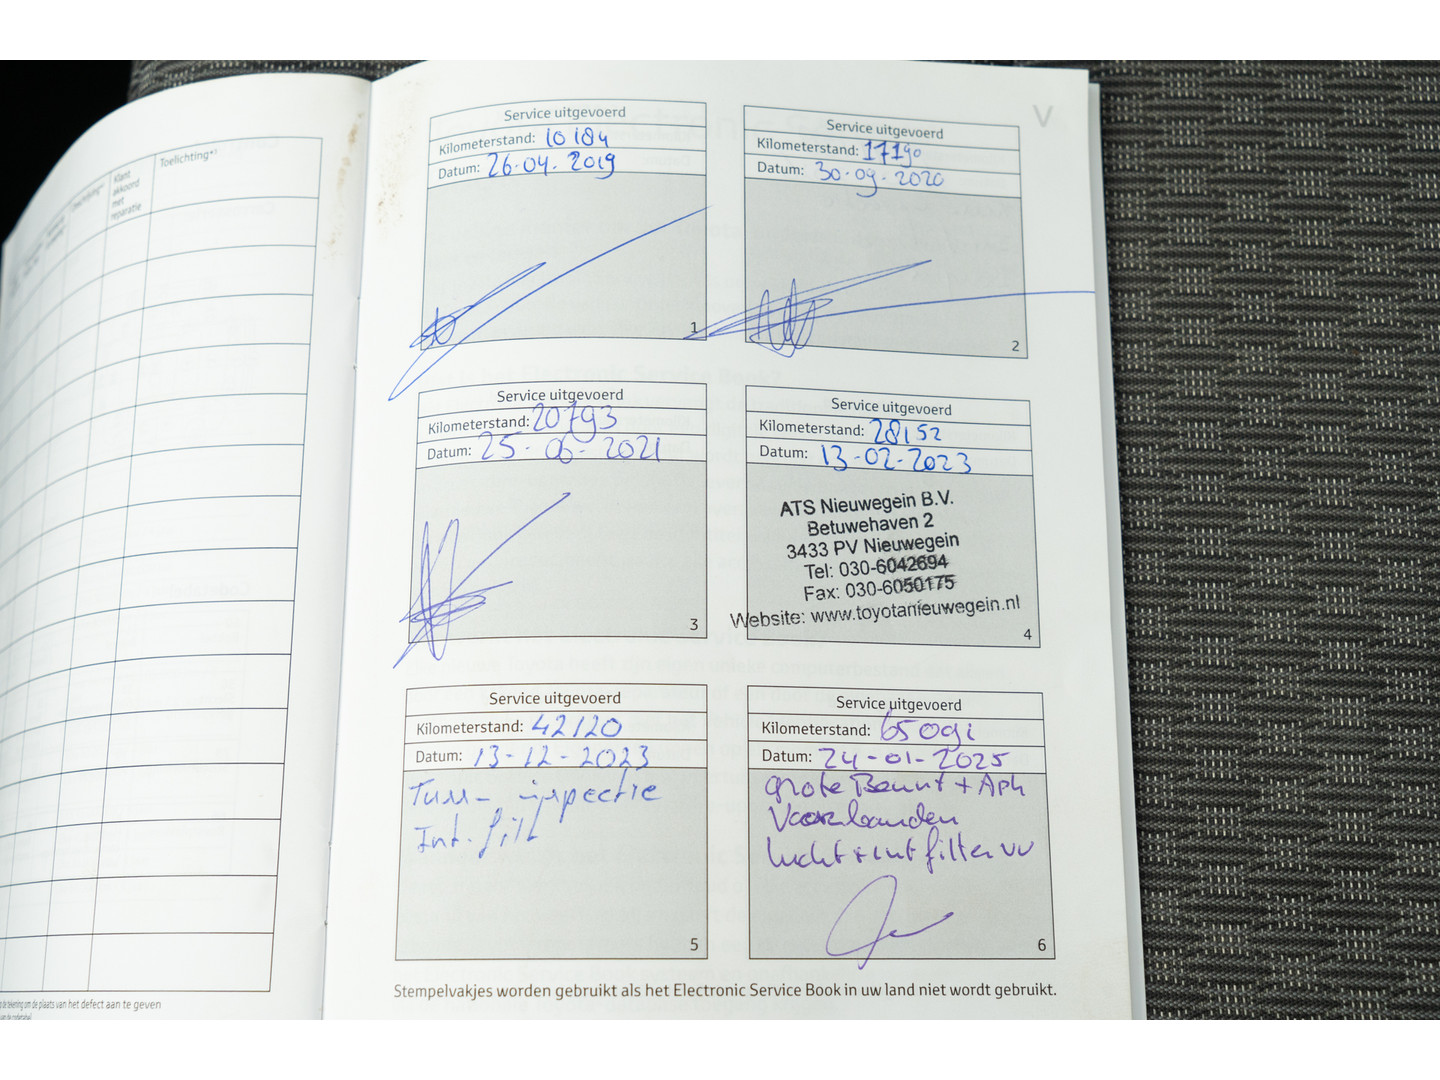 Toelichting*¹
Klant
akkoord
met
reparatie
van het defect aan te geven
V
Service uitgevoerd
Kilometerstand: 10184
Datum: 26-04-2019
1
Service uitgevoerd
Kilometerstand: 17190
Datum: 30-09-2020
2
Service uitgevoerd
Kilometerstand: 20793
Datum: 25-06-2021
3
Service uitgevoerd
Kilometerstand: 28152
Datum: 13-02-2023
ATS Nieuwegein B.V.
Betuwehaven 2
3433 PV Nieuwegein
Tel: 030-6042694
Fax: 030-6050175
Website: www.toyotanieuwegein.nl
4
Service uitgevoerd
Kilometerstand: 42120
Datum: 13-12-2023
Tuss- inspectie
Int. filt
5
Service uitgevoerd
Kilometerstand: 65091
Datum: 24-01-2025
grote Beurt + Apk
Voorbanden
lucht + int filter vv
6
Stempelvakjes worden gebruikt als het Electronic Service Book in uw land niet wordt gebruikt.